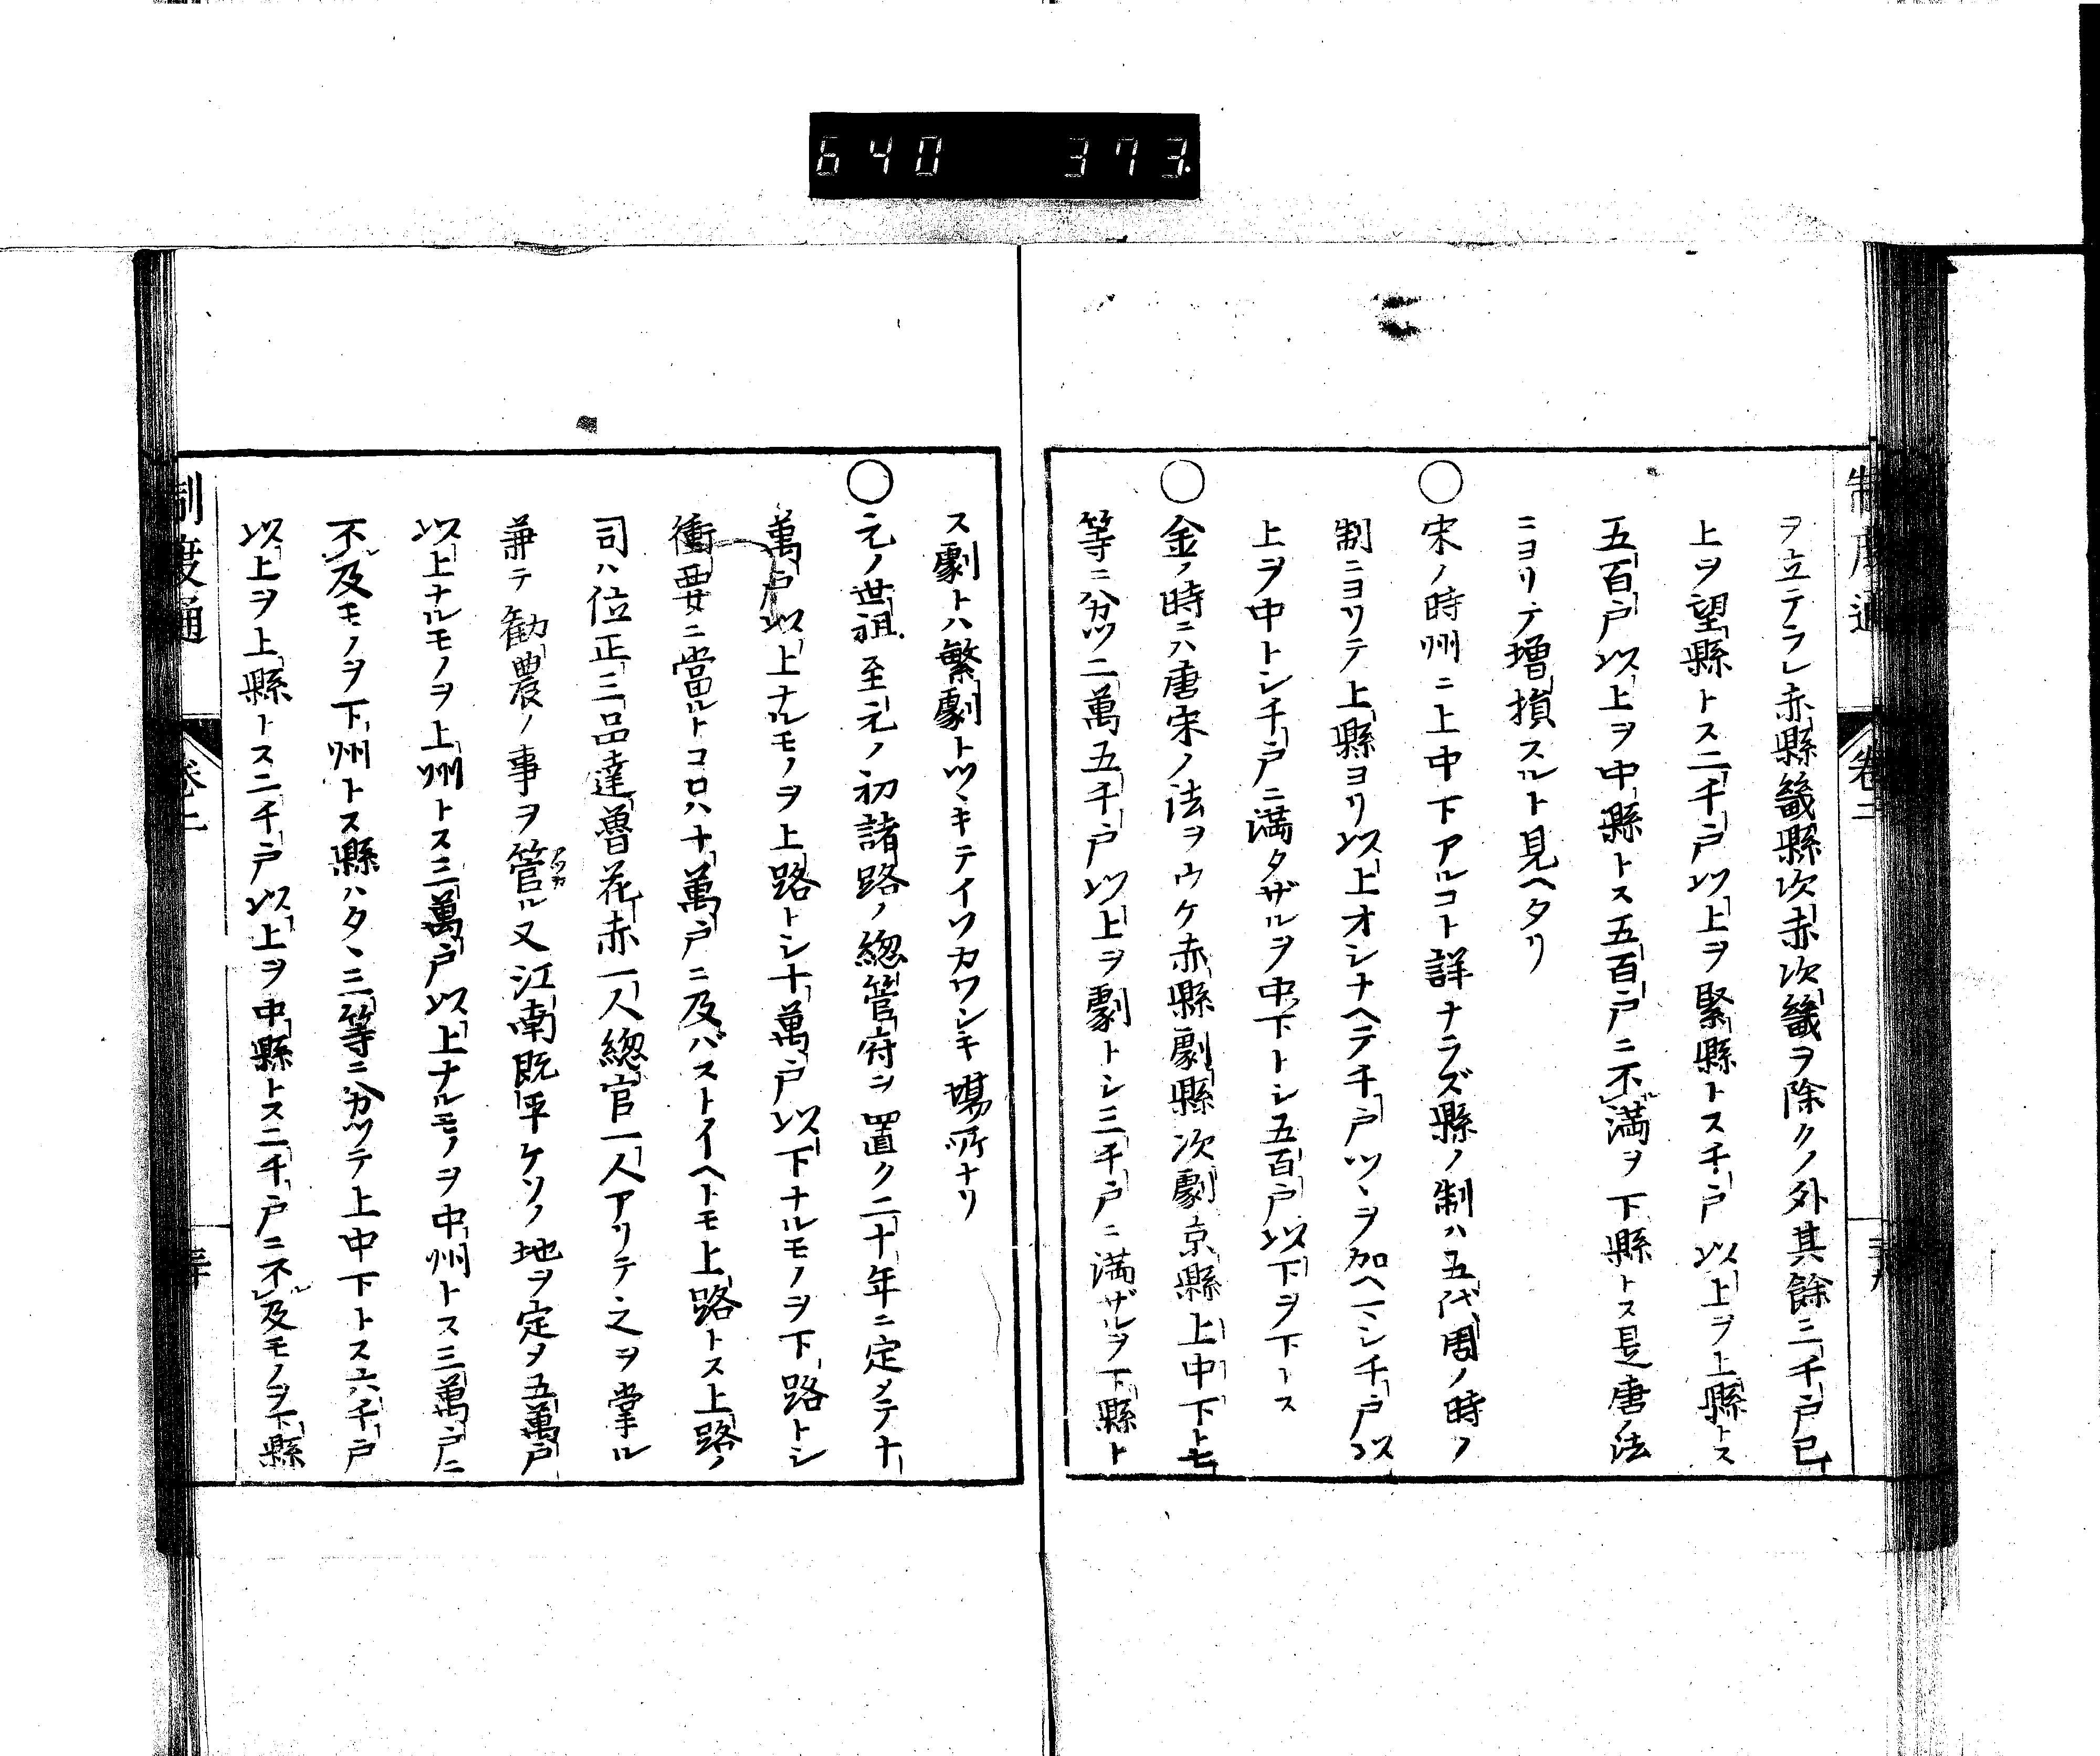 640 373.
制度通 卷二
ヲ立テラレ赤縣畿縣次赤次畿ヲ除クノ外其餘三千戸已
上ヲ望縣トス二千戸以上ヲ緊縣トス千戸以上ヲ上縣トス
五百戸以上ヲ中縣トス五百戸ニ不満ヲ下縣トス是唐ノ法
ニヨリテ増損スルト見ヘタリ
○宋ノ時州ニ上中下アルコト詳ナラズ縣ノ制ハ五代周ノ時ノ
制ニヨリテ上縣ヨリ以上オシナヘテ千戸ツヽヲ加ヘマシ千戸以
上ヲ中トシ千戸ニ満タザルヲ中下トシ五百戸以下ヲ下トス
○金ノ時ニハ唐宋ノ法ヲウケ赤縣劇縣次劇京縣上中下ト七
等ニ分ツ二萬五千戸以上ヲ劇トシ三千戸ニ満ザルヲ下縣ト
ス劇トハ繁劇トツヽキテイソカワシキ場所ナリ
○元ノ世祖至元ノ初諸路ノ總管府ヲ置ク二十年ニ定メテ十
萬戸以上ナルモノヲ上路トシ十萬戸以下ナルモノヲ下路トシ
衝要ニ當ルトコロハ十萬戸ニ及バストイヘトモ上路トス上路ノ
司ハ位正三品達魯花赤一人總官一人アリテ之ヲ掌ル
兼テ勧農ノ事ヲ管ル又江南既平ケソノ地ヲ定ヲ五萬戸
以上ナルモノヲ上州トス三萬戸以上ナルモノヲ中州トス三萬戸ニ
不及モノヲ下州トス縣ハタヽ三等ニ分ツテ上中下トス六千戸
以上ヲ上縣トス二千戸以上ヲ中縣トス二千戸ニ不及モノヲ下縣
制度通 卷二